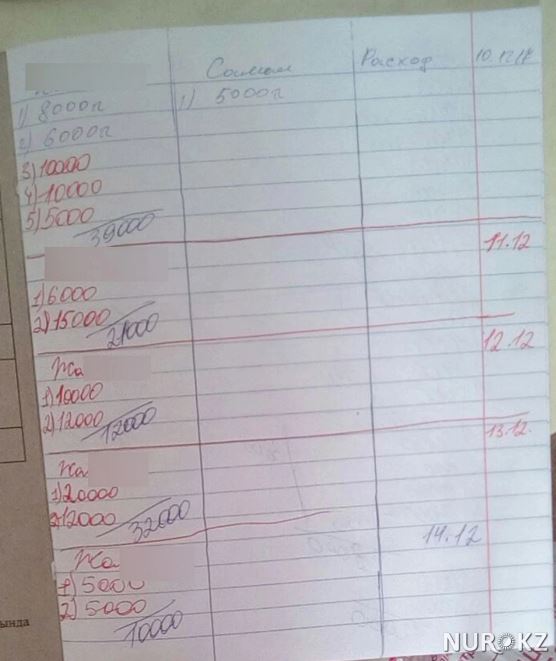 Расход 10.12
1) 8000г 1) 5000г
2) 6000г
3) 10000
4) 10000
5) 5000
39000
11.12
1) 6000
2) 15000
21000
12.12
Жа
1) 10000
2) 12000
12000
13.12.
Жа
1) 20000
2) 12000
32000
14.12
Жа
1) 5000
2) 5000
10000
ында
NUR.KZ